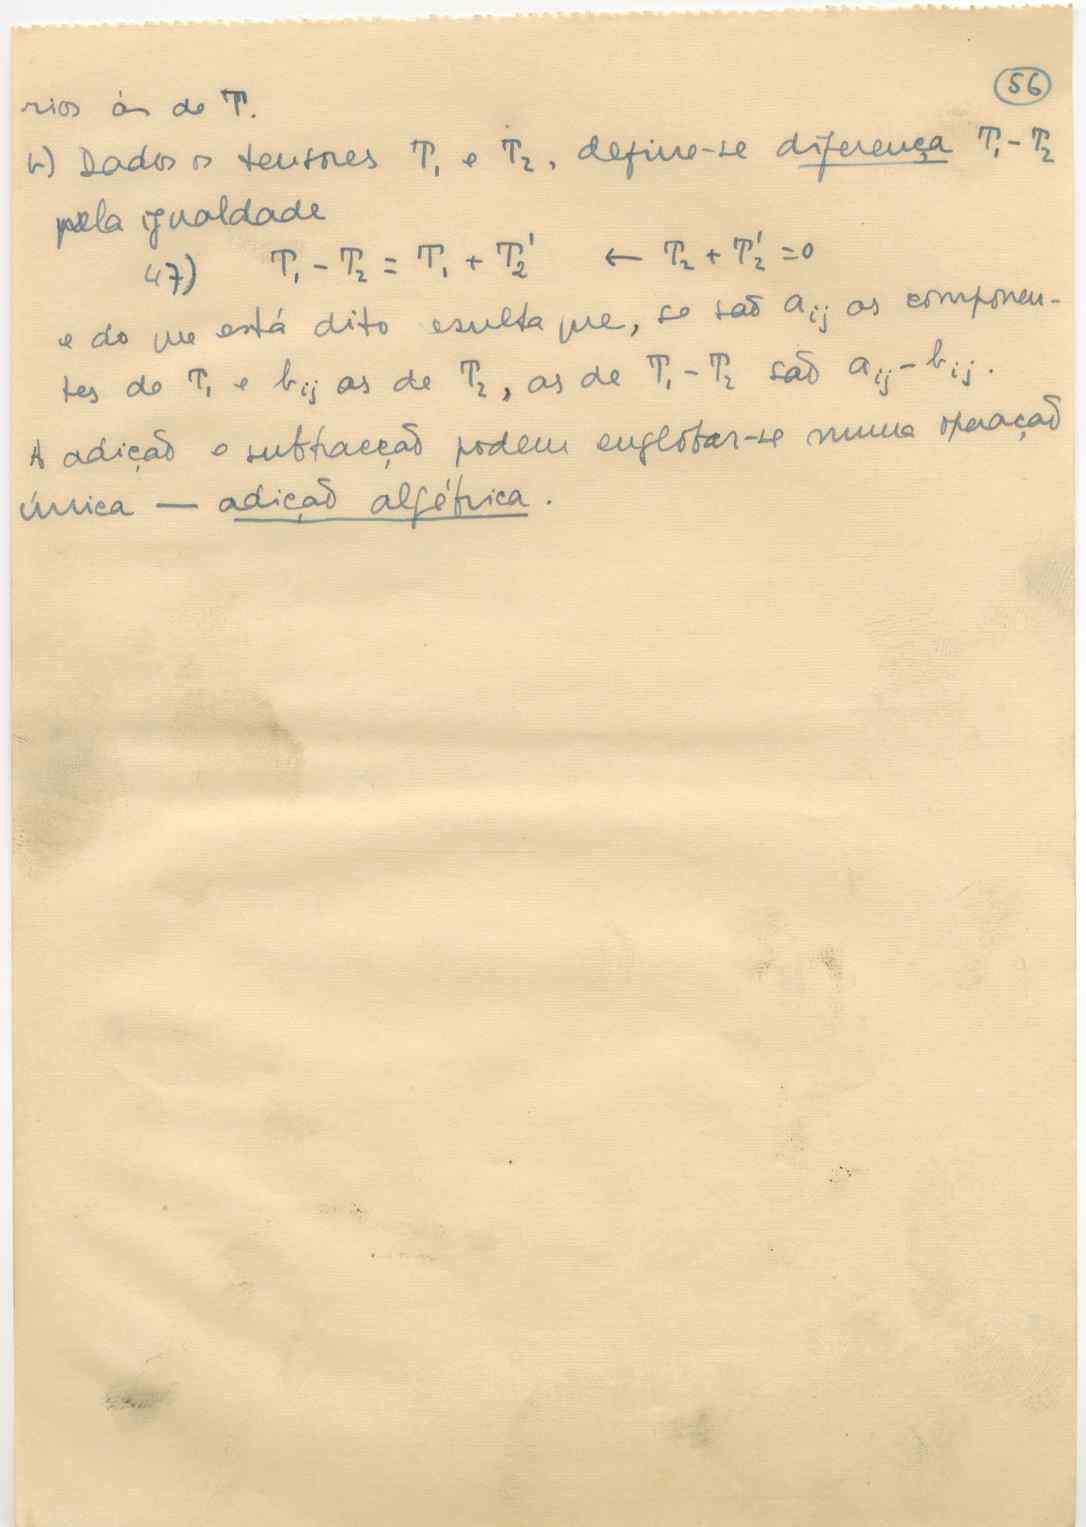 56
rios ás de T.
b) Dados os tensores T₁ e T₂, define-se diferença T₁-T₂
pela igualdade
47) T₁ - T₂ = T₁ + T₂' ← T₂ + T₂' = 0
e do que está dito resulta que, se são aᵢⱼ as componen-
tes de T₁ e bᵢⱼ as de T₂, as de T₁-T₂ são aᵢⱼ-bᵢⱼ.
A adição e subtracção podem englobar-se numa operação
única — adição algébrica.